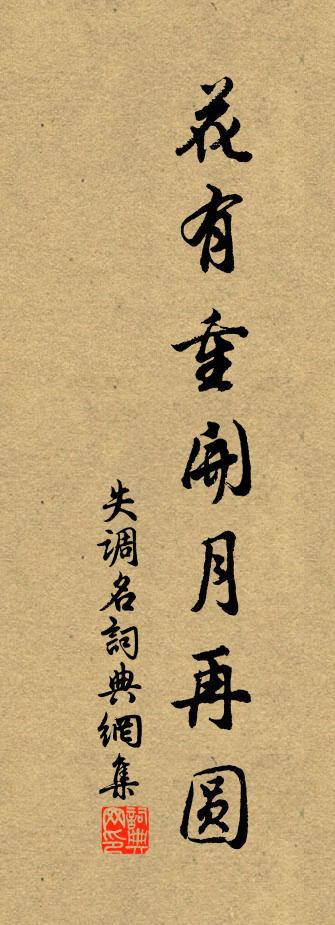 花有重開月再圆
失调名詞典網集
詞典网印